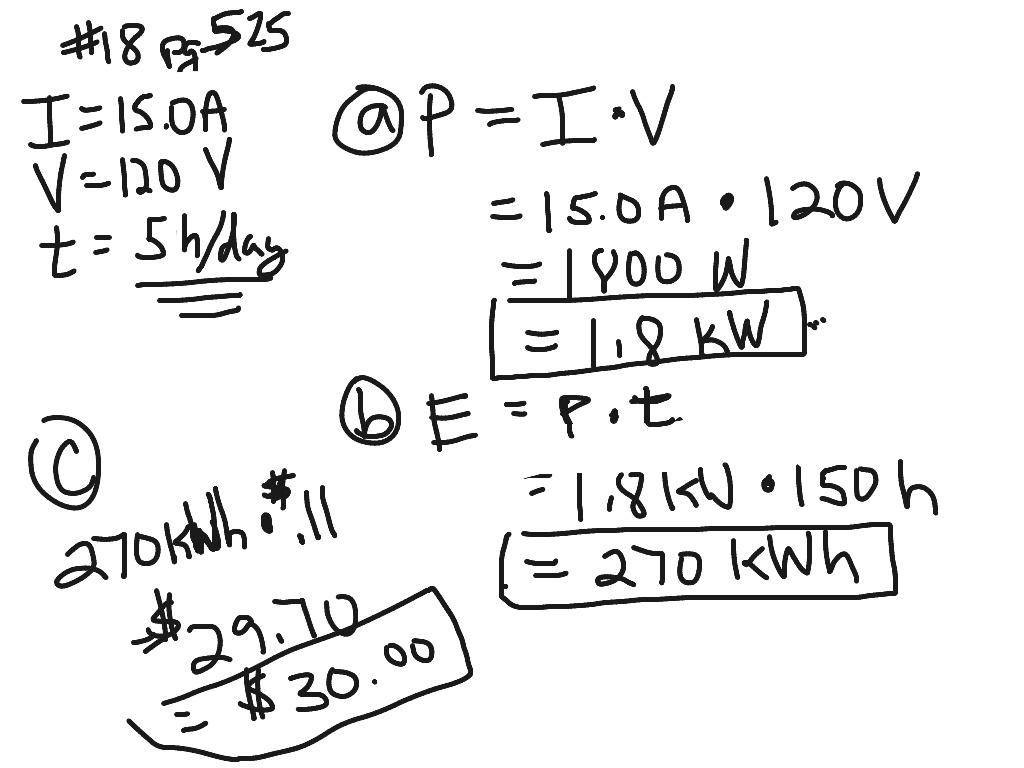 #18 pg 525
I = 15.0A
V = 120 V
t = 5 h/day
ⓐ P = I · V
= 15.0A · 120V
= 1800 W
= 1.8 kW
ⓑ E = P · t
= 1.8 kW · 150 h
= 270 kWh
ⓒ
270 kWh · $.11
$29.70
= $30.00